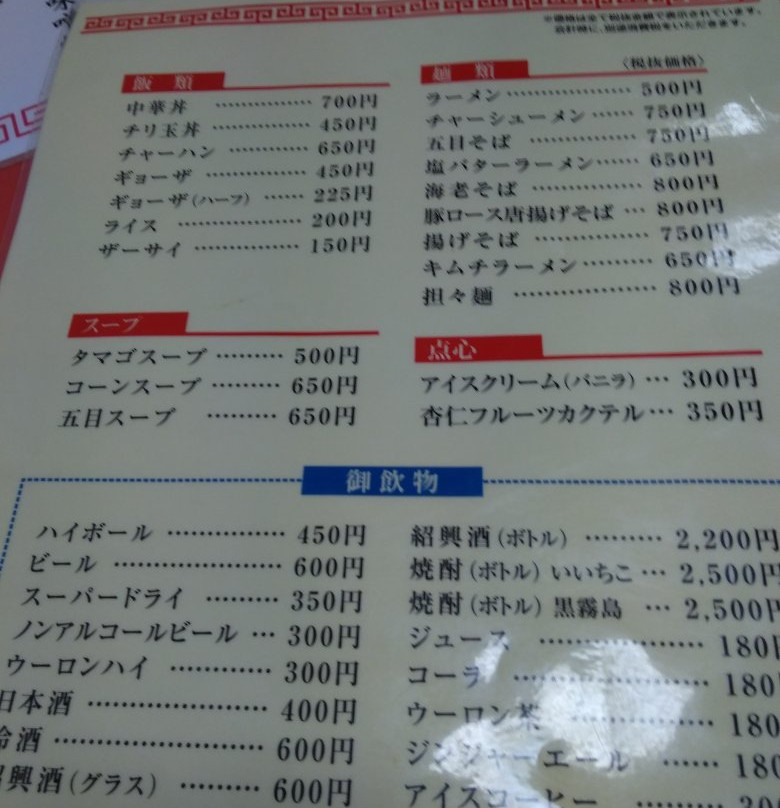 ※価格は全て税抜金額で表示されています。
会計時に、別途消費税をいただきます。
飯類
中華丼 …………… 700円
チリ玉丼 …………… 450円
チャーハン ………… 650円
ギョーザ …………… 450円
ギョーザ(ハーフ) …… 225円
ライス ……………… 200円
ザーサイ …………… 150円
麺類 〈税抜価格〉
ラーメン ……………… 500円
チャーシューメン …… 750円
五目そば …………… 750円
塩バターラーメン …… 650円
海老そば …………… 800円
豚ロース唐揚げそば … 800円
揚げそば …………… 750円
キムチラーメン ……… 650円
担々麺 ……………… 800円
スープ
タマゴスープ ……… 500円
コーンスープ ……… 650円
五目スープ ……… 650円
点心
アイスクリーム(バニラ) … 300円
杏仁フルーツカクテル … 350円
御飲物
ハイボール …………… 450円
ビール ………………… 600円
スーパードライ ……… 350円
ノンアルコールビール … 300円
ウーロンハイ ………… 300円
日本酒 ……………… 400円
冷酒 …………………… 600円
紹興酒(グラス) ……… 600円
紹興酒(ボトル) ……… 2,200円
焼酎(ボトル) いいちこ … 2,500円
焼酎(ボトル) 黒霧島 … 2,500円
ジュース ……………… 180円
コーラ ………………… 180
ウーロン茶 …………… 180
ジンジャーエール …… 180
アイスコーヒー